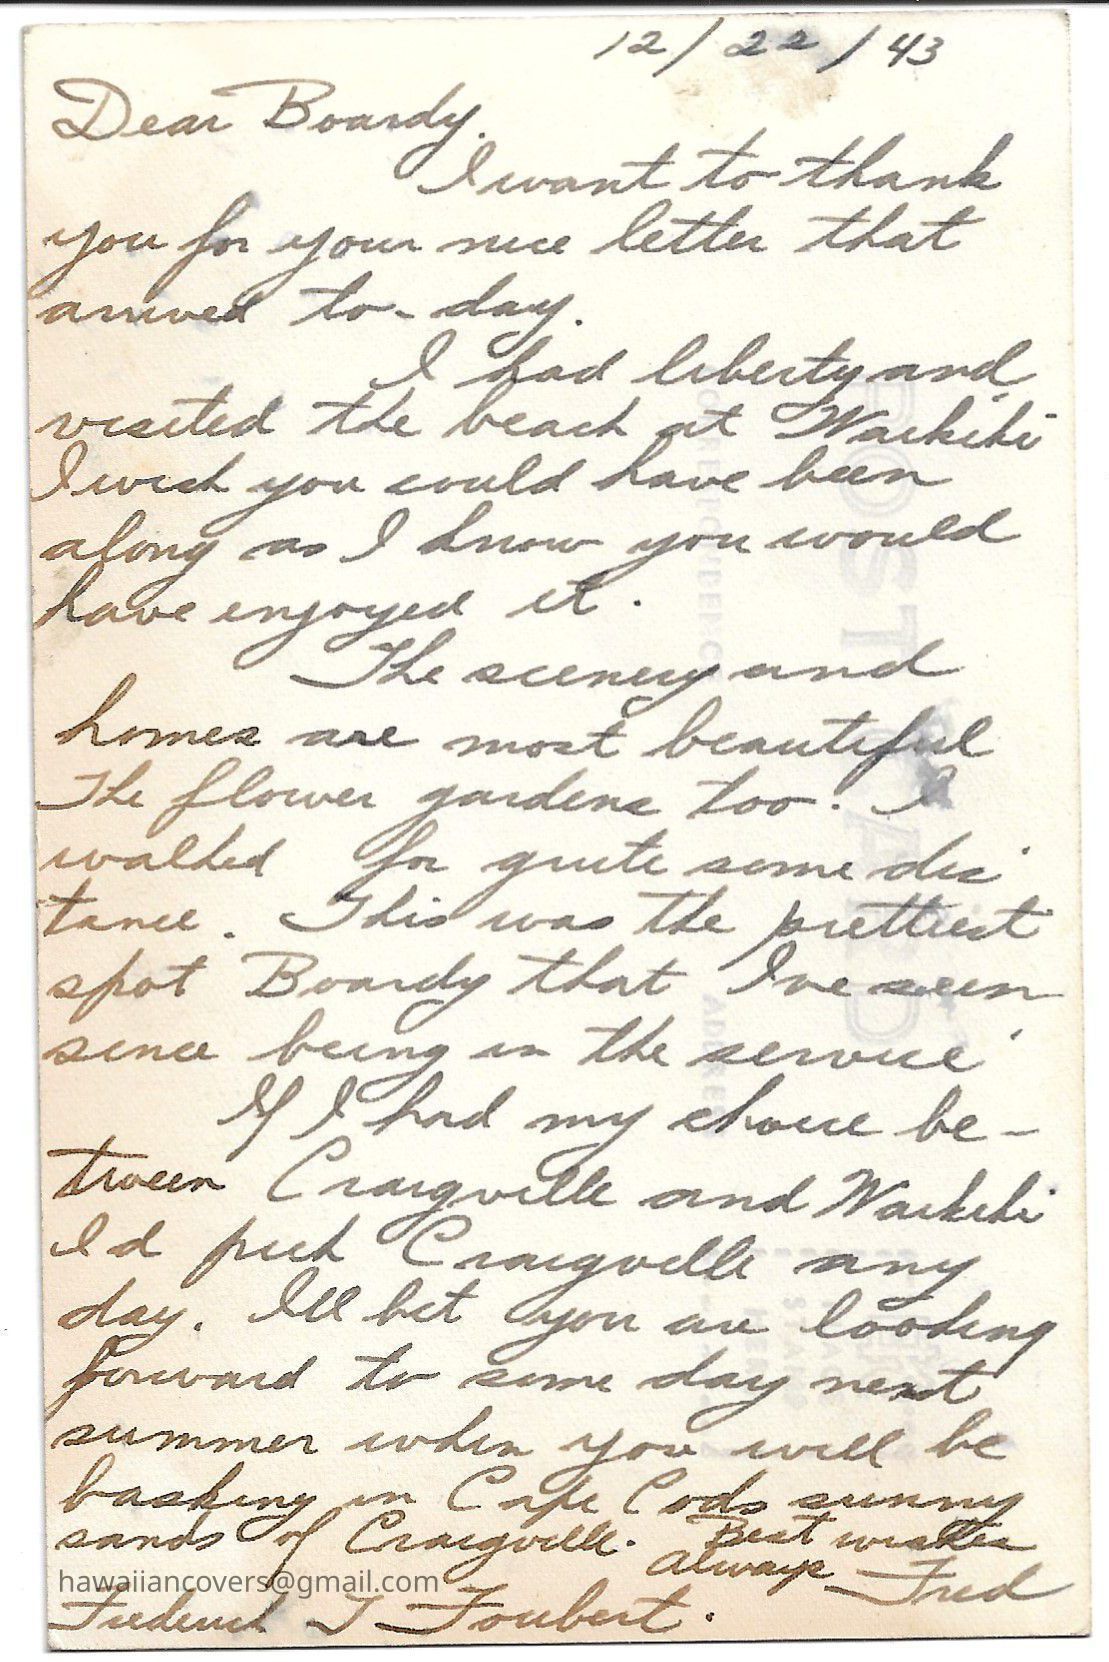 12/22/43
Dear Boardy.
I want to thank
you for your nice letter that
arrived to-day.
I had liberty and
visited the beach at Waikiki
I wish you could have been
along as I know you would
have enjoyed it.
The scenery and
homes are most beautiful
The flower gardens too. I
walked for quite some dis
tance. This was the prettiest
spot Boardy that I've seen
since being in the service.
If I had my choice be-
tween Craigville and Waikiki
I'd pick Craigville any
day. I'll bet you are looking
forward to some day next
summer when you will be
basking in Cape Cods sunny
sands of Craigville. Best wishes
Always Fred
hawaiiancovers@gmail.com
Frederick J Foubert.
POST CARD
CORRESPONDENCE
ADDRESS